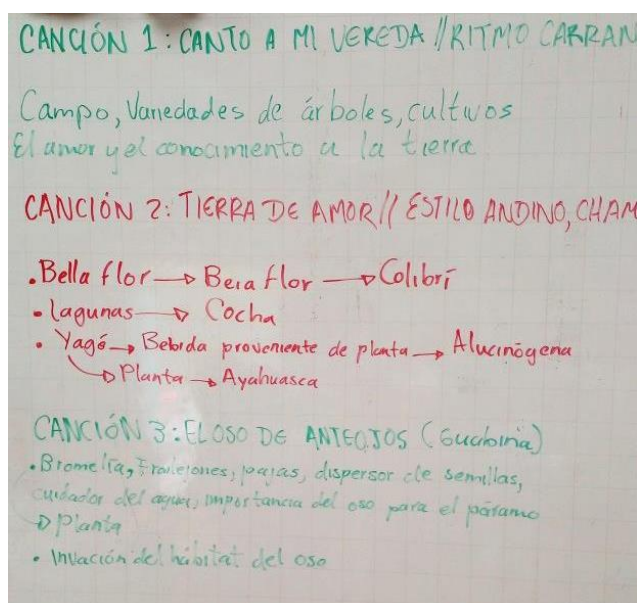 CANCIÓN 1: CANTO A MI VEREDA // RITMO CARRAN
Campo, Variedades de árboles, cultivos
El amor y el conocimiento a la tierra
CANCIÓN 2: TIERRA DE AMOR // ESTILO ANDINO, CHAM
. Bella flor → Beia flor → Colibrí
- lagunas → Cocha
. Yagé → Bebida proveniente de planta → Alucinógena
→ Planta → Ayahuasca
CANCIÓN 3: EL OSO DE ANTEOJOS (Guabina)
. Bromelia, Frailejones, pajas, dispersor de semillas,
cuidador del agua, importancia del oso para el páramo
→ Planta
. Invación del hábitat del oso